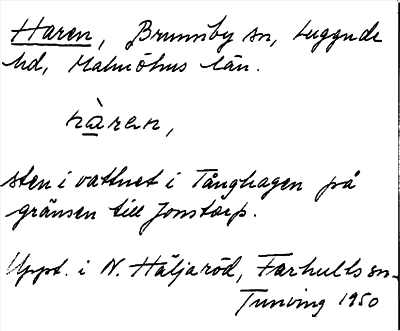 Haren, Brunnby sn, Luggude
hd, Malmöhus län.
hàren,
sten i vattnet i Tånghagen på
gränsen till Jonstorp.
Uppt. i N. Häljaröd, Farhults sn.
Tuning 1950